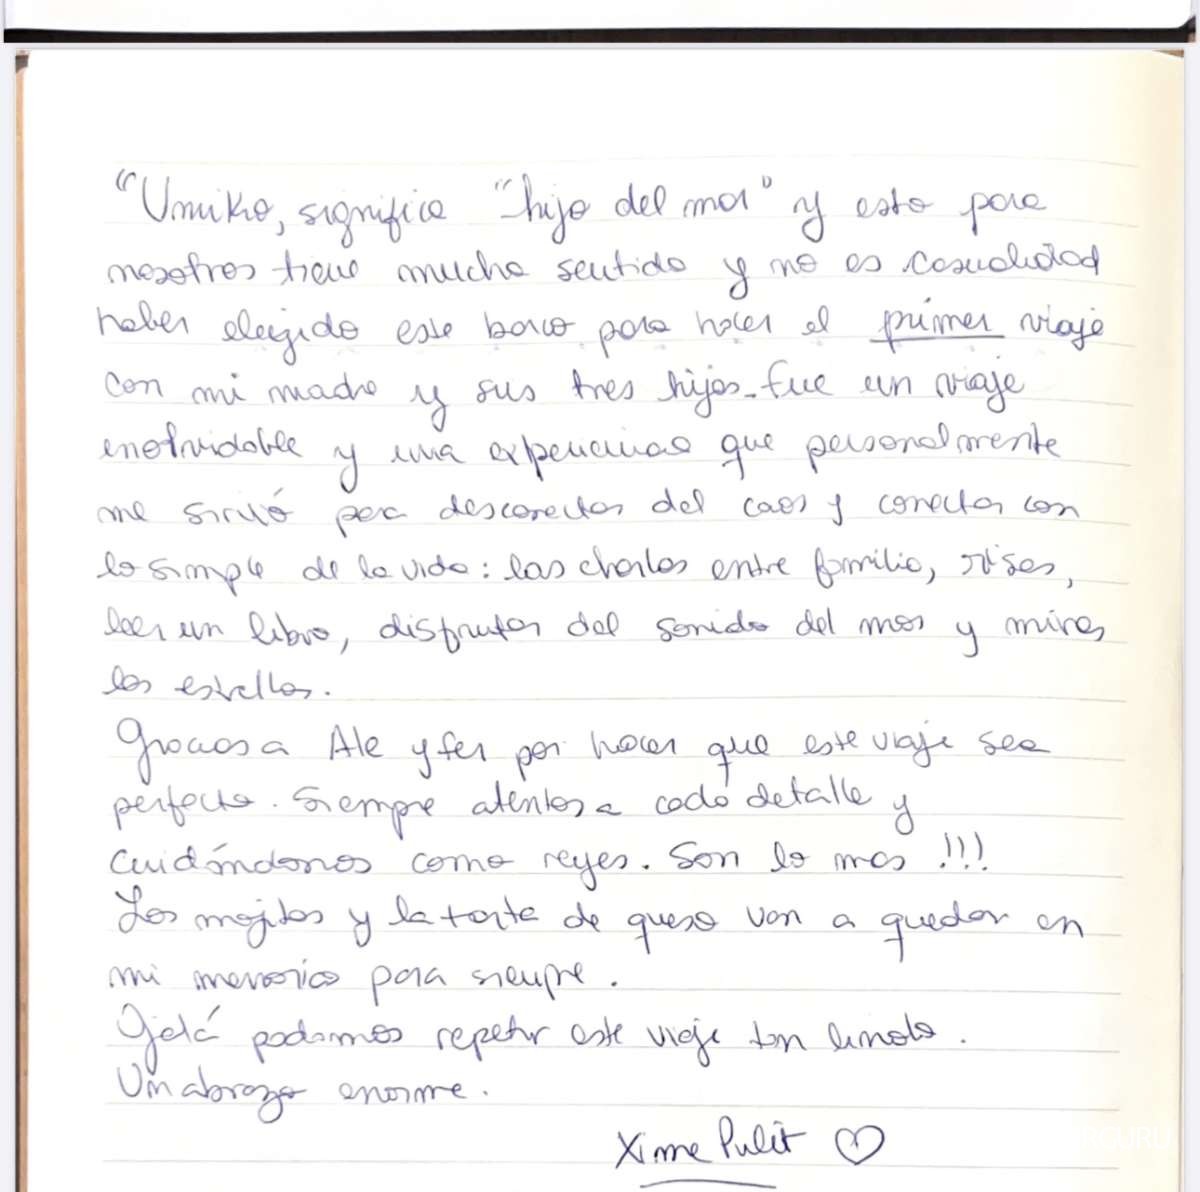 “Umiko, significa “hijo del mar” y esto para
nosotros tiene mucho sentido y no es casualidad
haber elegido este barco para hacer el primer viaje
con mi madre y sus tres hijos. Fue un viaje
inolvidable y una experiencia que personalmente
me sirvió para desconectar del caos y conectar con
lo simple de la vida: las charlas entre familia, risas,
leer un libro, disfrutar del sonido del mar y mirar
las estrellas.
Gracias a Ale y Fer por hacer que este viaje sea
perfecto. Siempre atentos a cada detalle y
cuidándonos como reyes. Son lo mas !!!
Los mojitos y la torta de queso van a quedar en
mi memoria para siempre.
Ojalá podamos repetir este viaje tan lindo.
Un abrazo enorme.
Xime Pulit